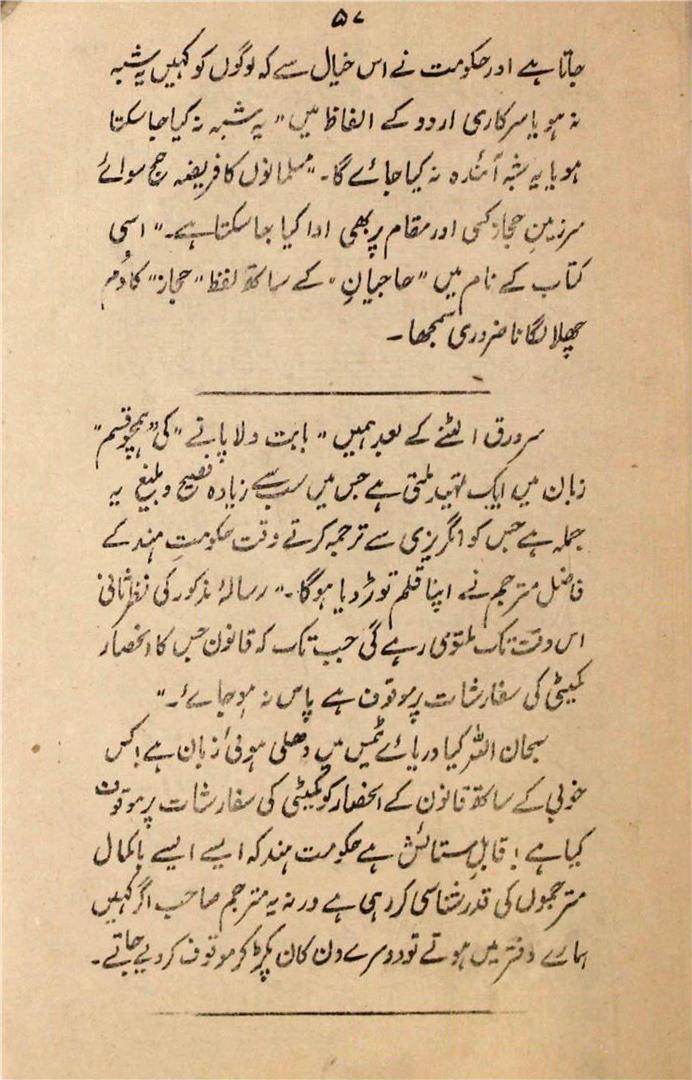 ۵۷
جاتا ہے اور حکومت نے اس خیال سے کہ لوگوں کو کہیں یہ شبہ
نہ ہو یا سرکاری اردو کے الفاظ میں "یہ شبہ نہ کیا جا سکتا
ہو یا یہ شبہ آئندہ نہ کیا جائے گا۔" مسلمانوں کا فریضہ حج سوائے
سرزمینِ حجاز کسی اور مقام پر بھی ادا کیا جا سکتا ہے۔" اسی
کتاب کے نام میں "حاجیانِ" کے ساتھ لفظ "حجاز" کا دُم
چھلا لگانا ضروری سمجھا۔
سرورق الٹنے کے بعد ہمیں "بابت دلا پانے" کی "ہمچو قسم"
زبان میں ایک تمہید ملتی ہے جس میں سب سے زیادہ فصیح و بلیغ یہ
جملہ ہے جس کو انگریزی سے ترجمہ کرتے وقت حکومتِ ہند کے
فاضل مترجم نے اپنا قلم توڑ دیا ہوگا۔" رسالۂ مذکور کی نظرثانی
اس وقت تک ملتوی رہے گی جب تک کہ قانون جس کا انحصار
کمیٹی کی سفارشات پر موقوف ہے پاس نہ ہو جائے۔"
سبحان اللہ کیا دریائے ٹمیس میں دھلی ہوئی زبان ہے! کس
خوبی کے ساتھ قانون کے انحصار کو کمیٹی کی سفارشات پر موقوف
کیا ہے! قابلِ ستائش ہے حکومت ہند کہ ایسے ایسے باکمال
مترجموں کی قدرشناسی کر رہی ہے ورنہ یہ مترجم صاحب اگر کہیں
ہمارے دفتر میں ہوتے تو دوسرے دن کان پکڑ کر موقوف کر دیے جاتے۔